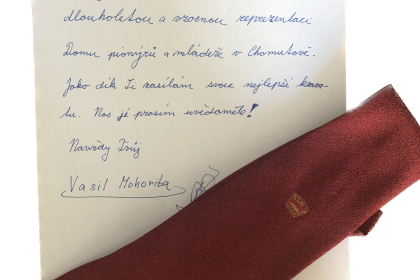 dlouholetou a vzornou reprezentaci
Domu pionýrů a mládeže v Chomutově.
Jako dík Ti zasílám svoce nejlepší krava-
tu. Nos je prosím uvědoměle!
Navždy Tvůj
Vasil Mohorita